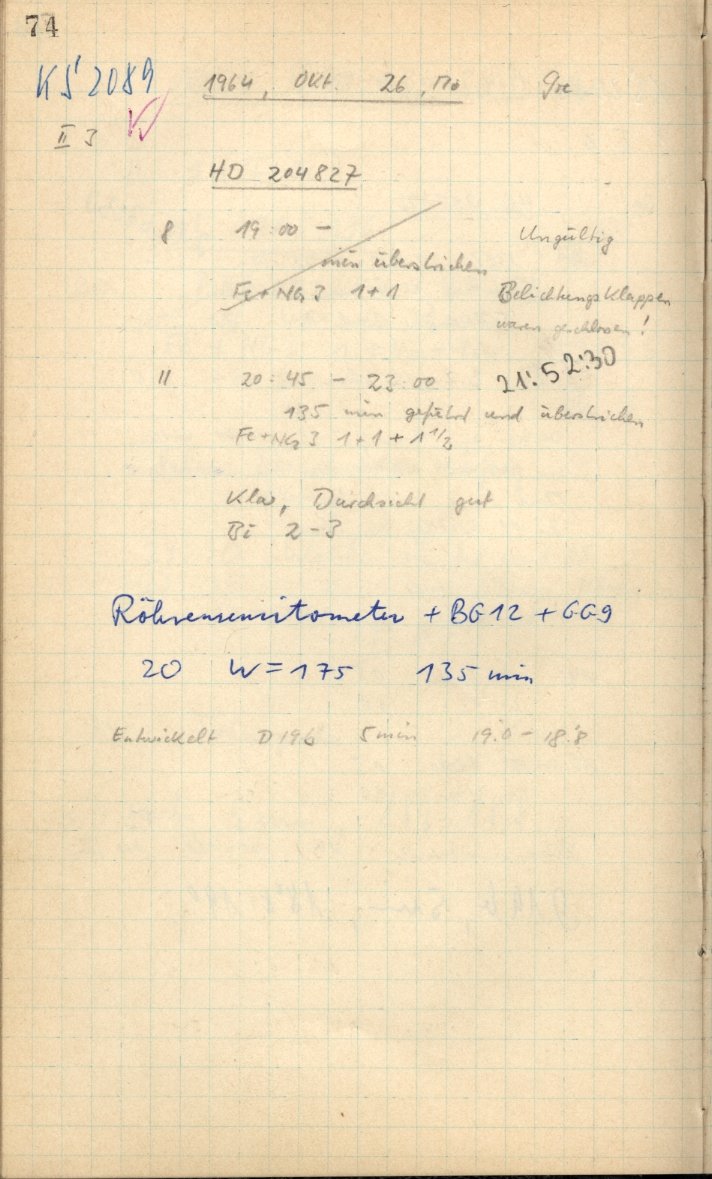 74
KS 2089
1964, Okt. 26, Mo Gre
II 3
HD 204827
8 19:00 - Ungültig
min überstrichen
Fe+NG3 1+1 Belichtungsklappen
waren geschlossen!
11 20:45 - 23:00
135 min geführt und überstrichen
Fe+NG3 1+1+1 1/2
Klar, Durchsicht gut
Bi 2-3
Röhrensensitometer + BG12 + GG9
20 W=175 135 min
Entwickelt D19b 5 min 19.0 - 18.8